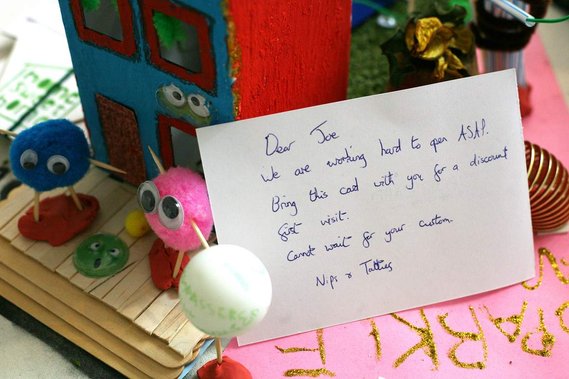 Dear Joe
We are working hard to open ASAP.
Bring this card with you for a discount
first visit.
Cannot wait for your custom.
Nips & Tatties